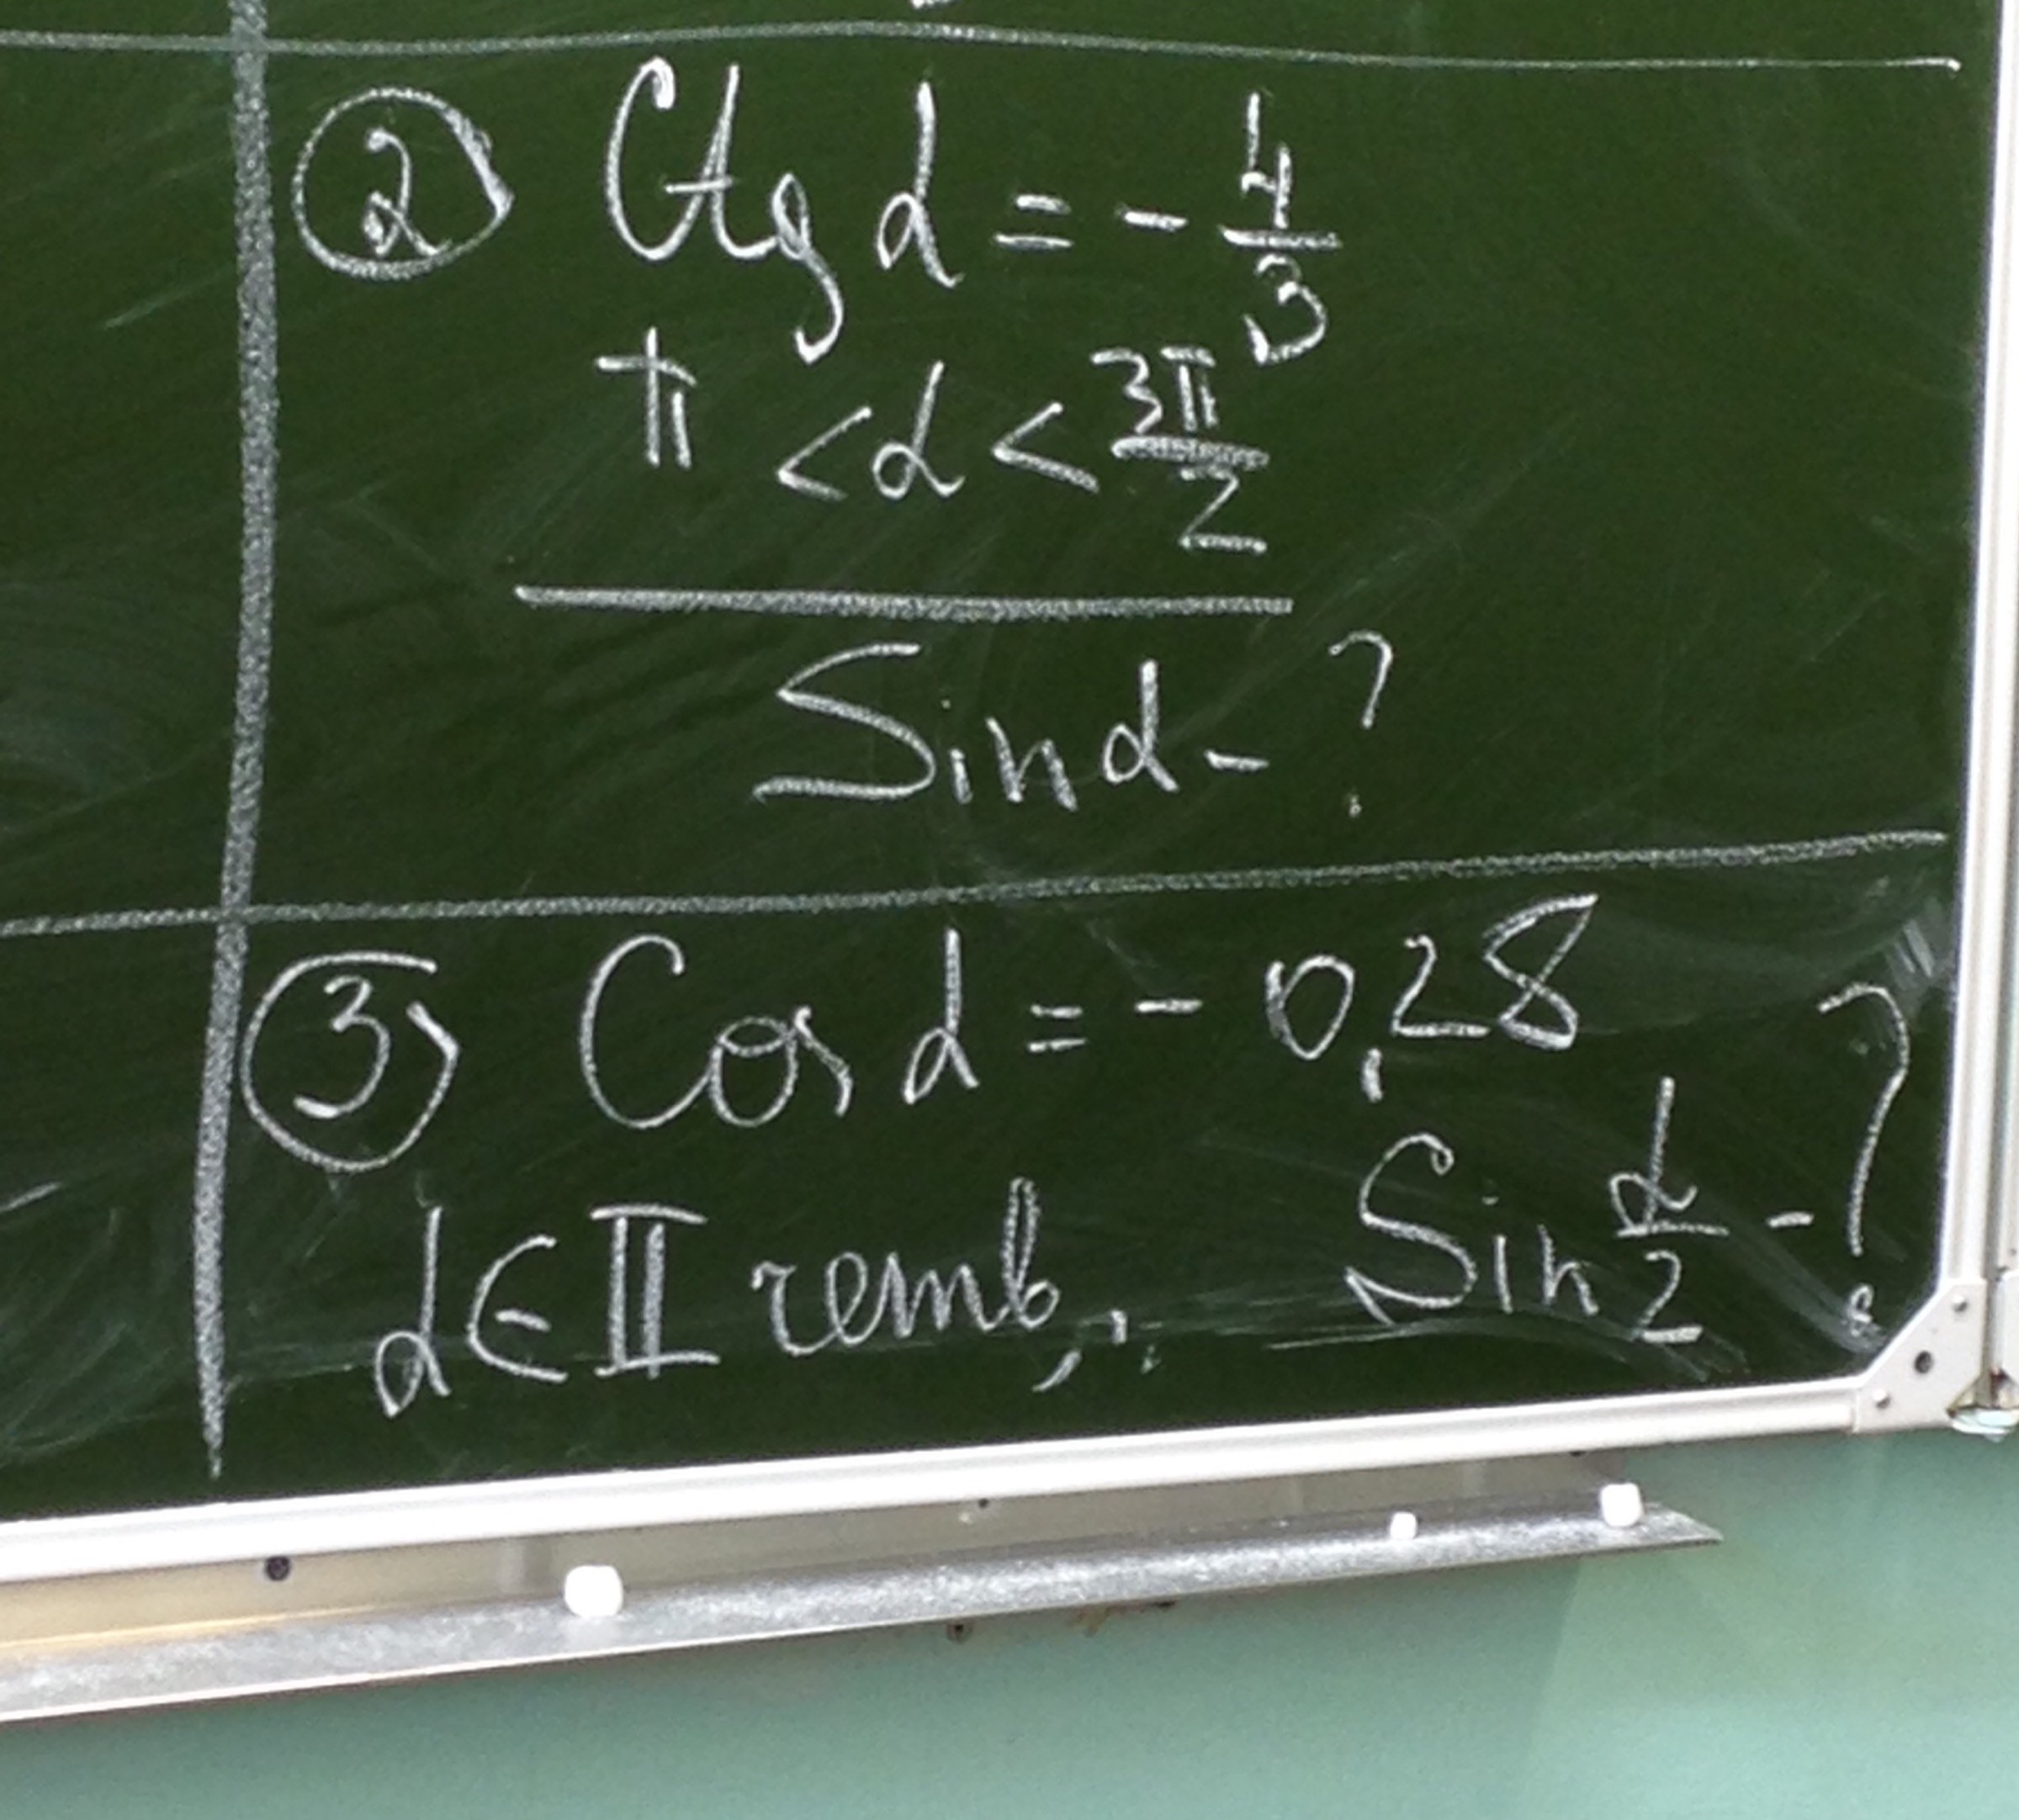 ② Ctg α = - 4/3
π < α < 3π/2
Sin α - ?
③ Cos α = - 0,28
α ∈ II четв, Sin α/2 - ?